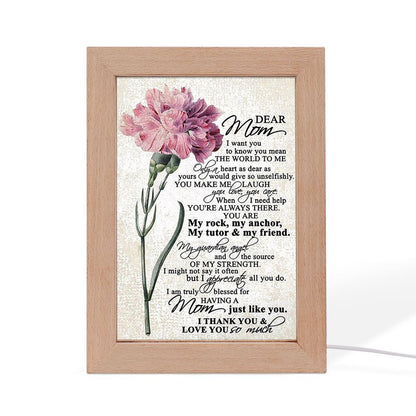 DEAR
Mom
I want you
to know you mean
THE WORLD TO ME
Only a heart as dear as
yours would give so unselfishly.
YOU MAKE ME LAUGH
you love, you care.
When I need help
YOU'RE ALWAYS THERE.
YOU ARE
My rock, my anchor,
My tutor & my friend.
My guardian angel
and the source
OF MY STRENGTH.
I might not say it often
but I appreciate all you do.
I am truly blessed for
HAVING A
Mom just like you.
I THANK YOU &
LOVE YOU so much